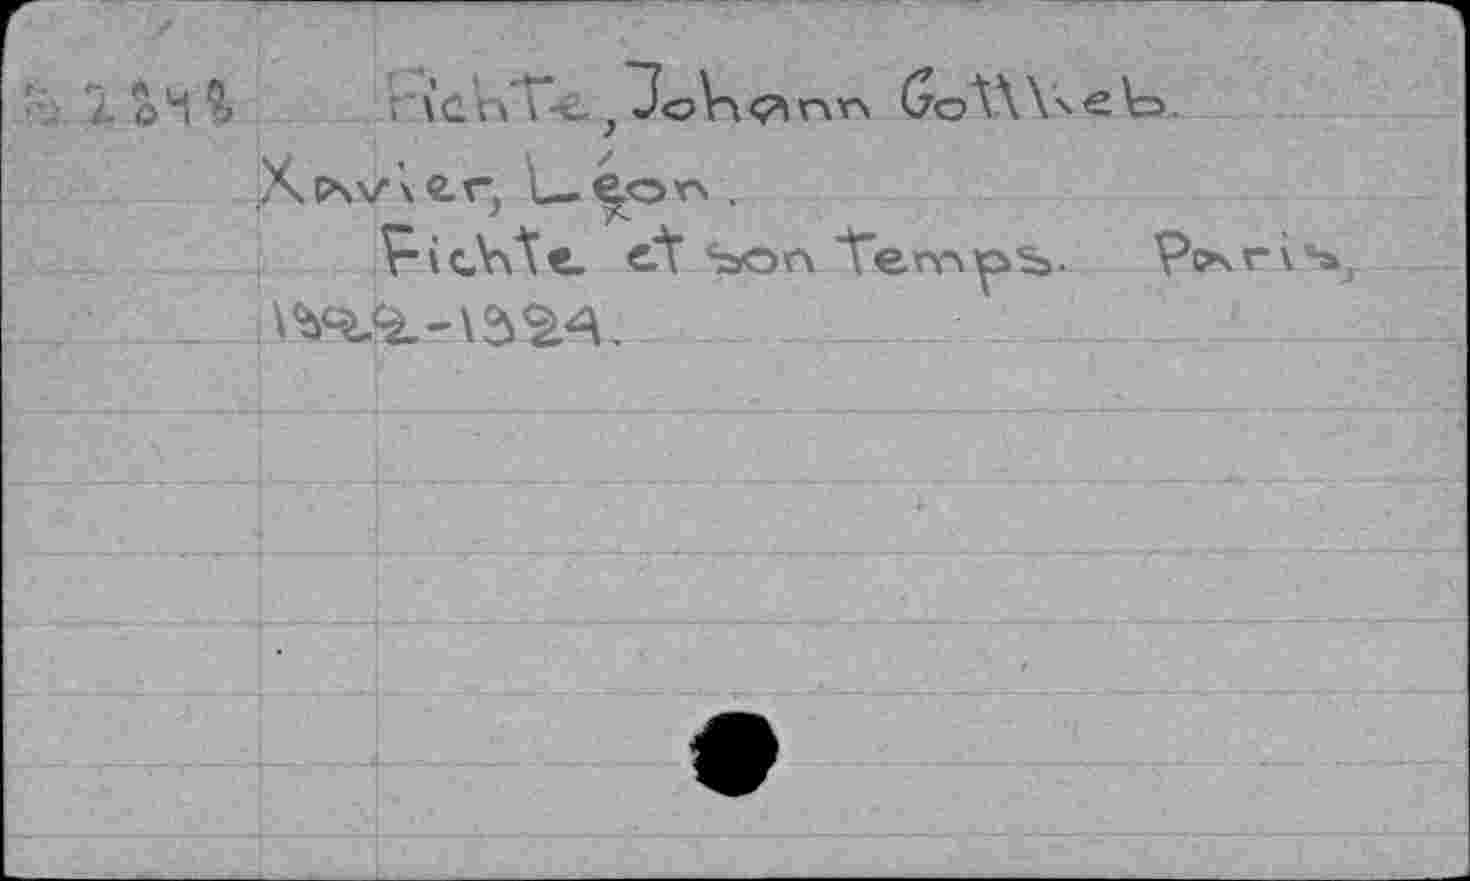 Fichte, Johann Gottlieb.
Xavier, Léon.
Fichte et son Temps. Paris,
1922-1924.